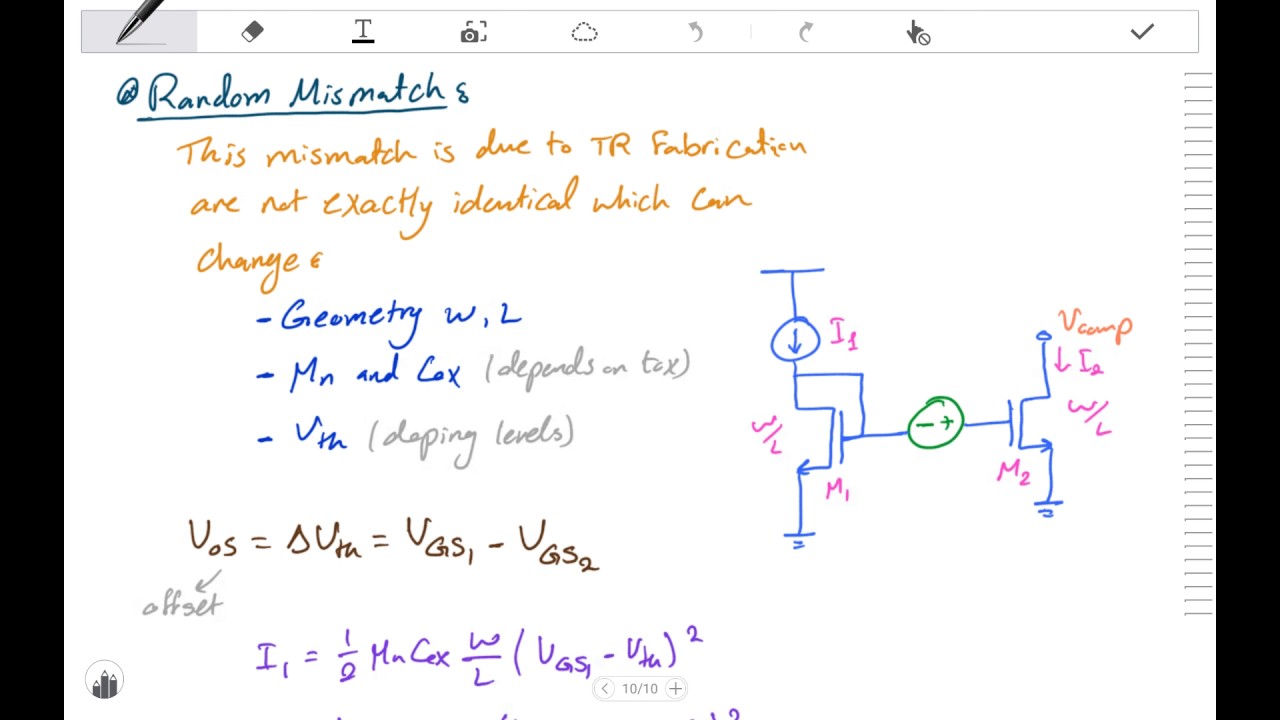 T
Random Mismatch :
This mismatch is due to TR Fabrication
are not exactly identical which can
change :
- Geometry W, L
- Mn and Cox (depends on tox)
- Vth (doping levels)
I1
Vcomp
I2
W/L
- +
W/L
M1
M2
Vos = ΔVth = VGS1 - VGS2
offset
I1 = 1/2 Mn Cox W/L (VGS1 - Vth)^2
10/10